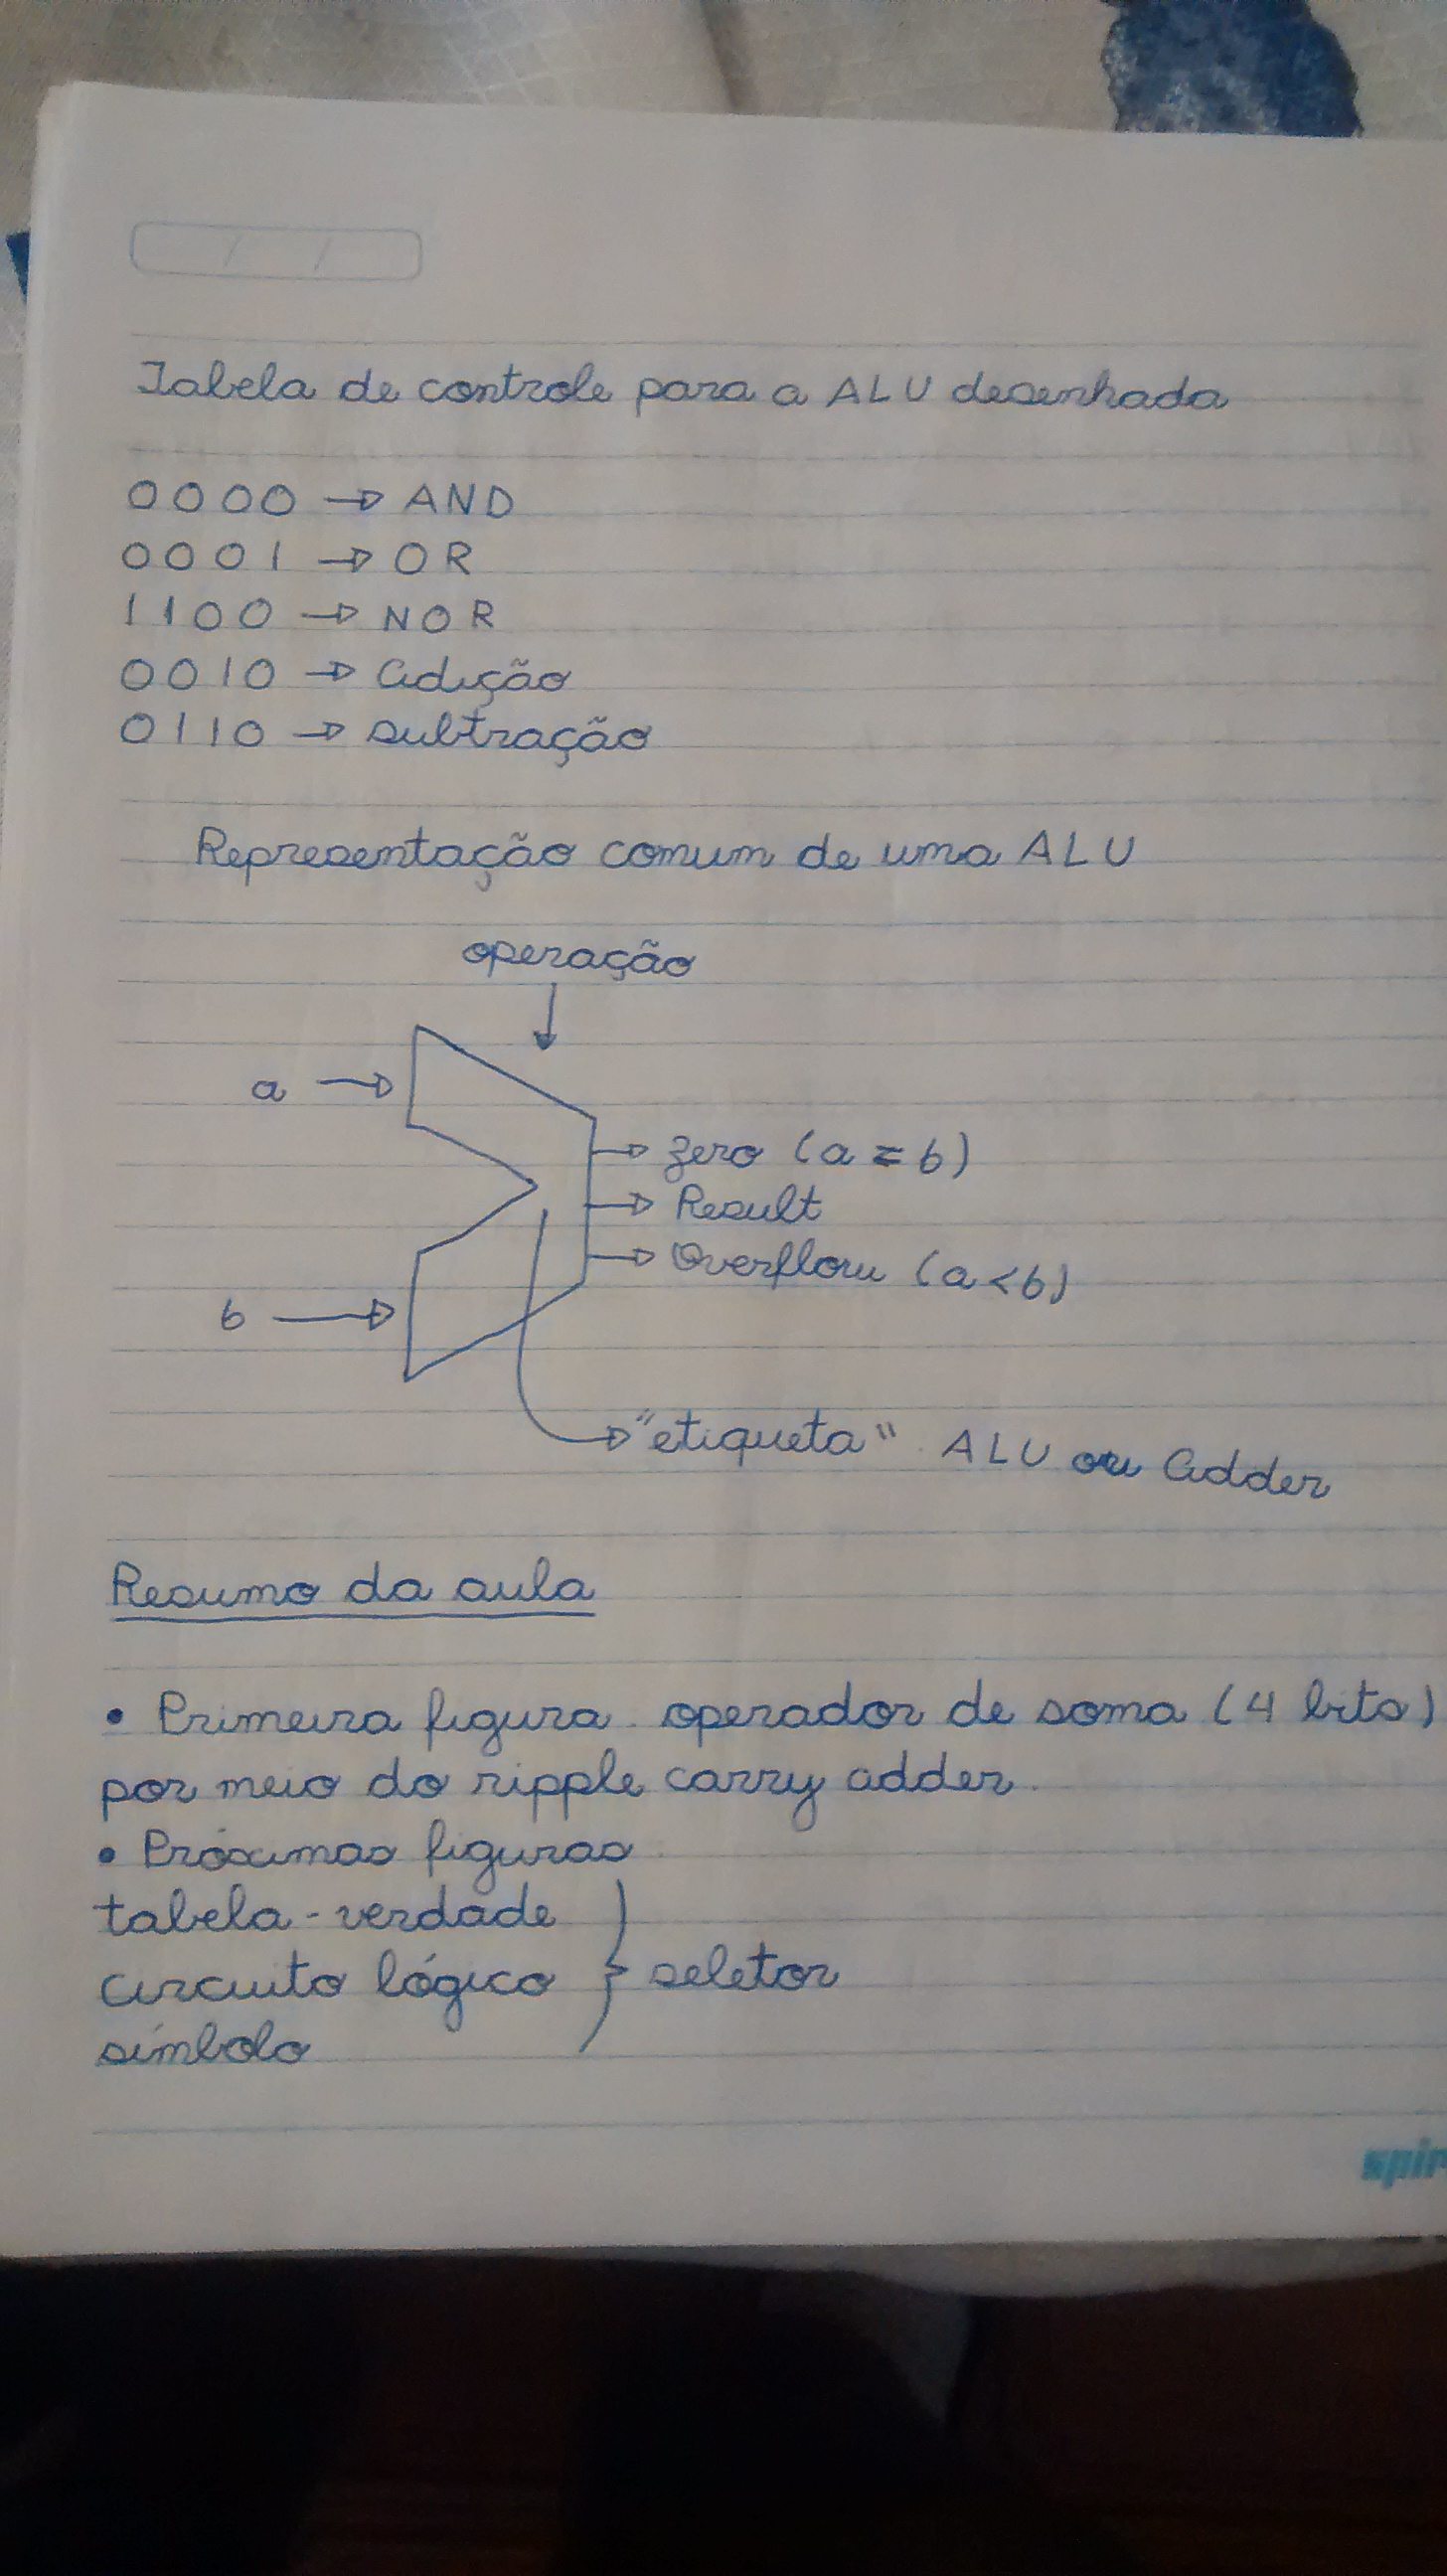 Tabela de controle para a ALU desenhada
0000 → AND
0001 → OR
1100 → NOR
0010 → Adição
0110 → subtração
Representação comum de uma ALU
operação
a →
→ zero (a = b)
→ Result
→ Overflow (a < b)
b →
→ "etiqueta" ALU ou Adder
Resumo da aula
• Primeira figura. operador de soma (4 bits)
por meio do ripple carry adder.
• Próximas figuras
tabela-verdade
circuito lógico } seletor
símbolo
spir